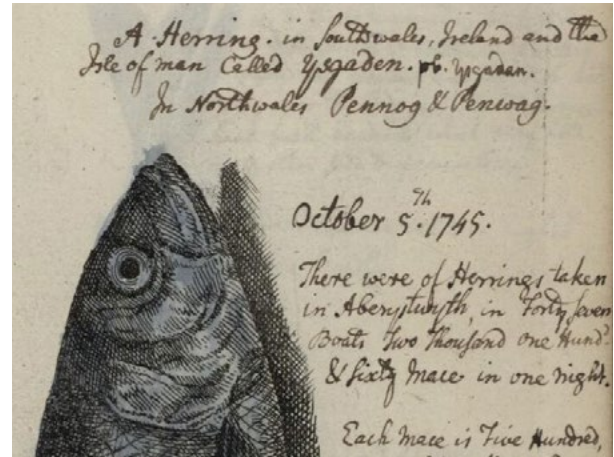 A Herring. in Southwales, Ireland and the
Isle of man Called Ysgaden. pl. Ysgadan.
In Northwales Pennog & Penwag.
October 5.th 1745.
There were of Herrings taken
in Aberystwyth, in Forty seven
Boats Two Thousand one Hund.d
& Sixty Mace in one night.
Each Mace is Five Hundred,